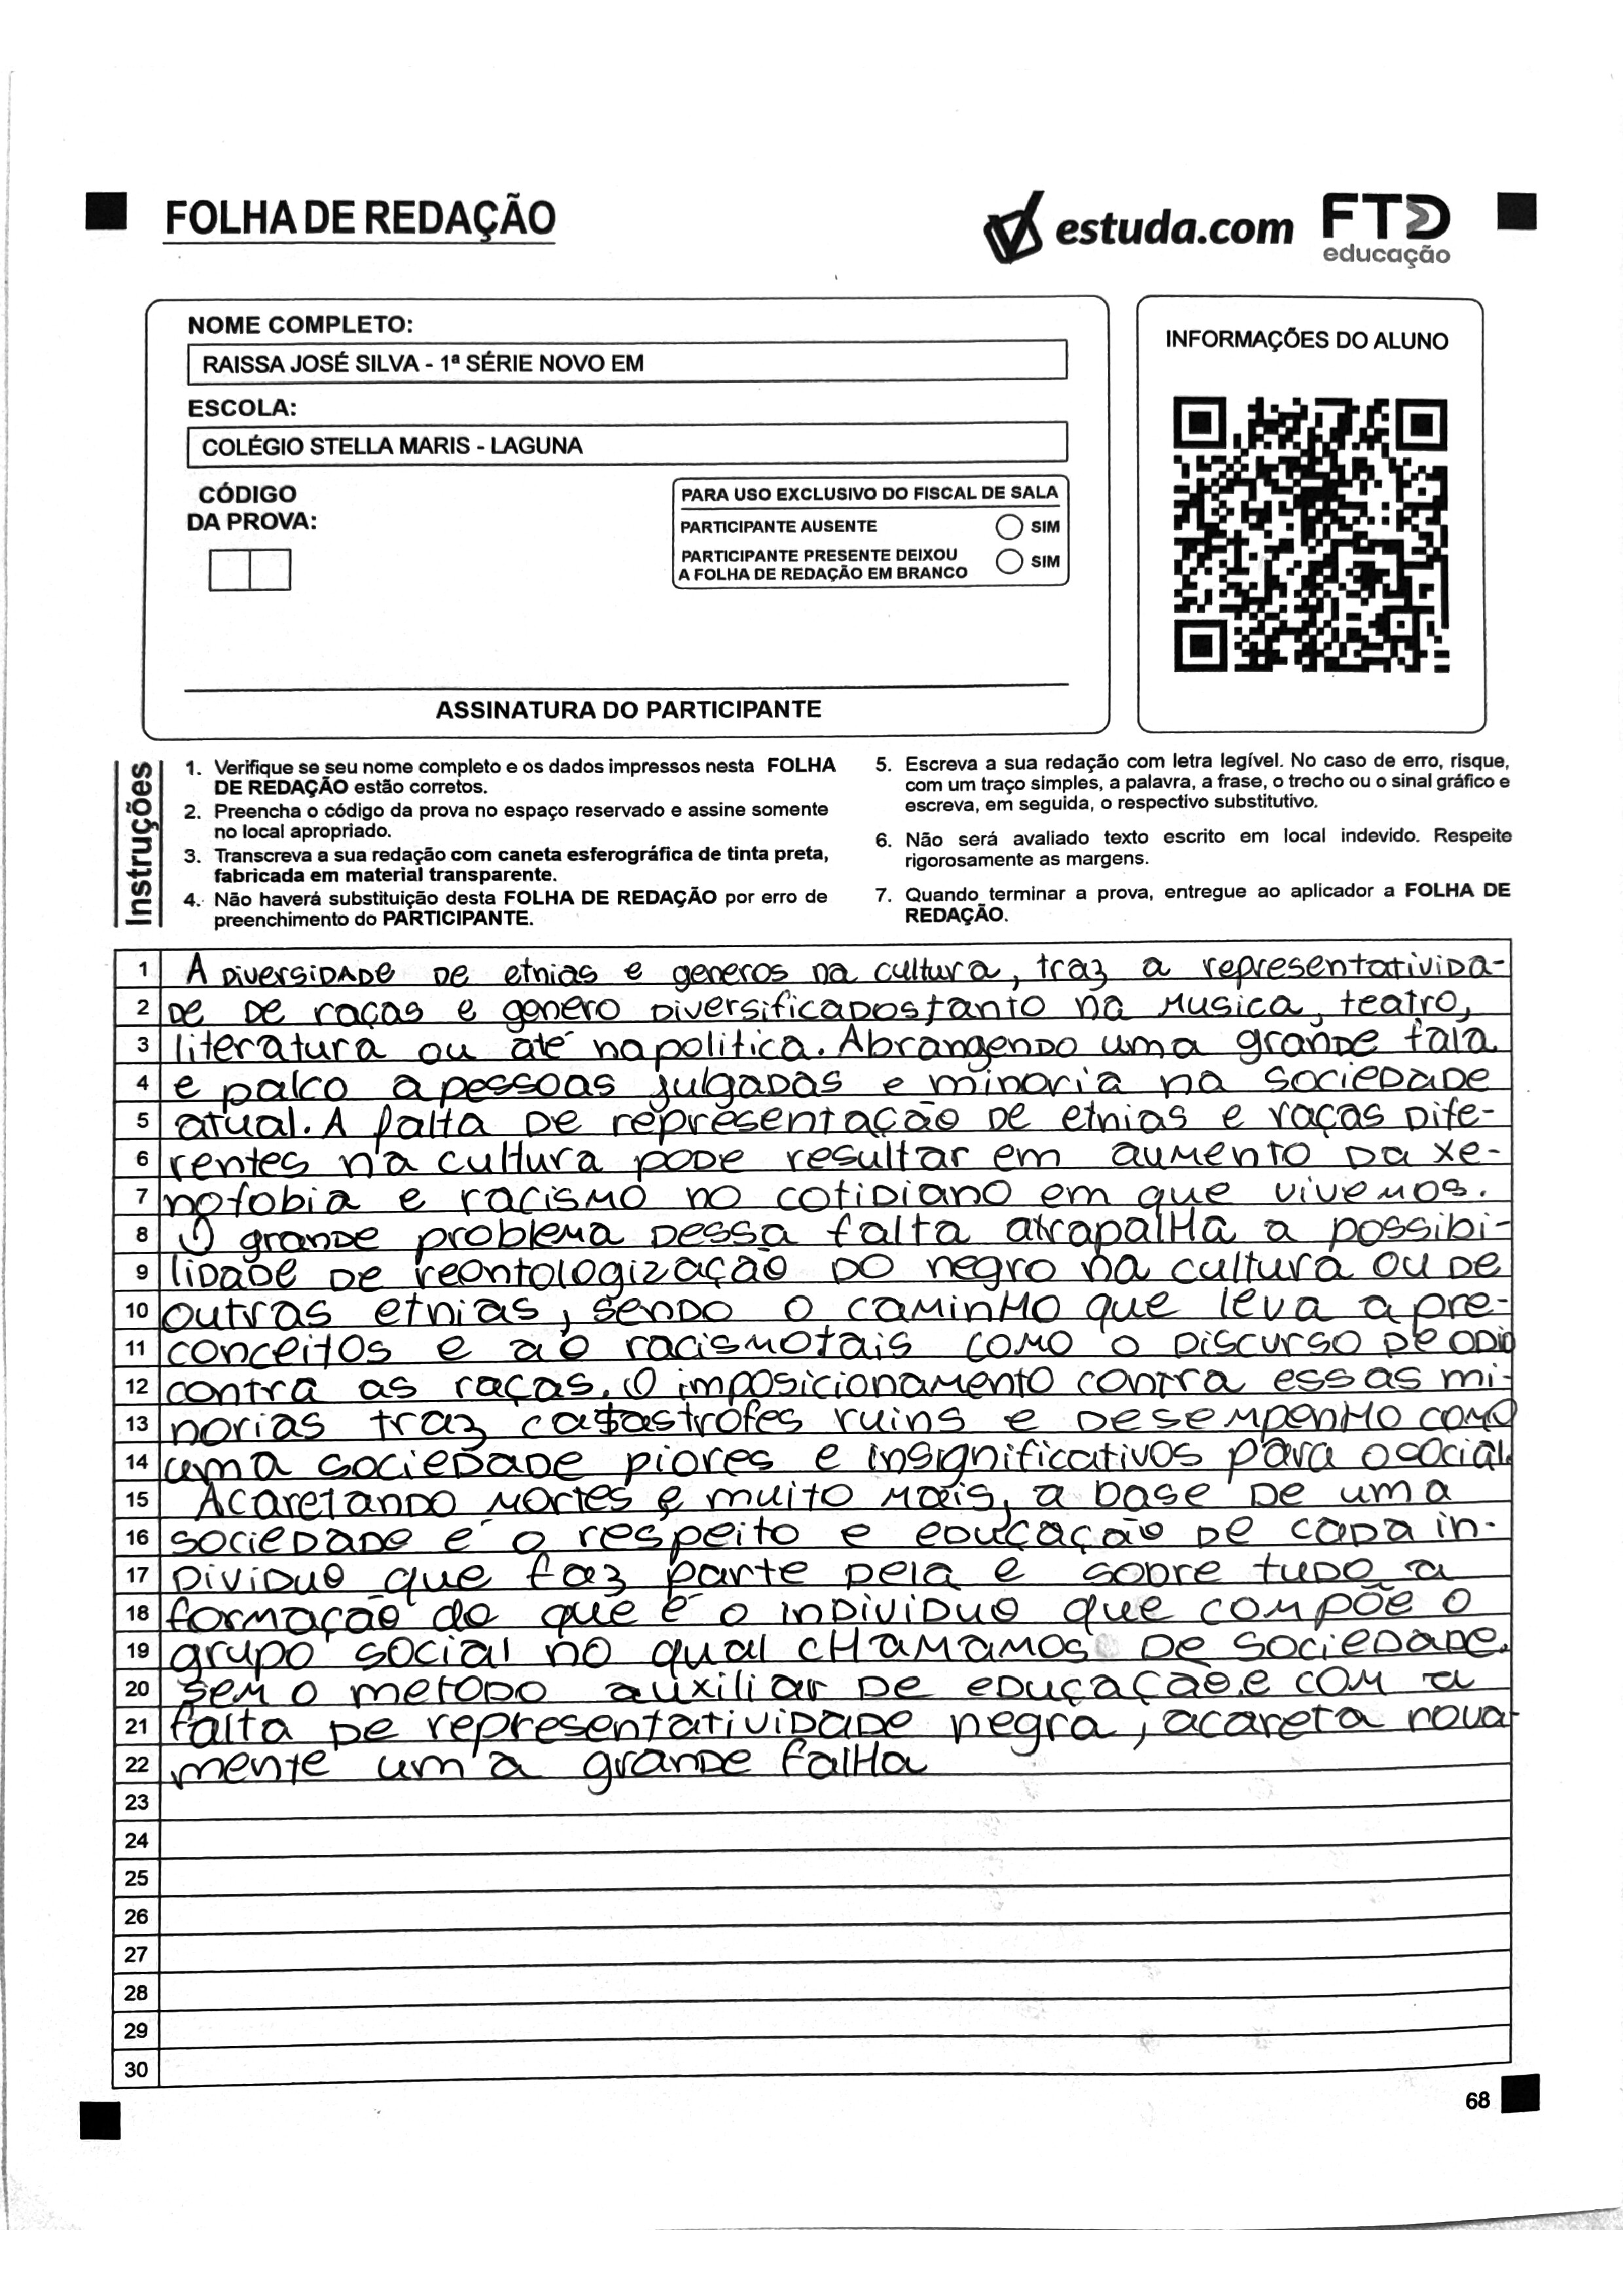 FOLHA DE REDAÇÃO
estuda.com
FTD
educação
NOME COMPLETO:
RAISSA JOSÉ SILVA - 1ª SÉRIE NOVO EM
ESCOLA:
COLÉGIO STELLA MARIS - LAGUNA
CÓDIGO
DA PROVA:
PARA USO EXCLUSIVO DO FISCAL DE SALA
PARTICIPANTE AUSENTE SIM
PARTICIPANTE PRESENTE DEIXOU
A FOLHA DE REDAÇÃO EM BRANCO SIM
ASSINATURA DO PARTICIPANTE
INFORMAÇÕES DO ALUNO
Instruções
1. Verifique se seu nome completo e os dados impressos nesta FOLHA
DE REDAÇÃO estão corretos.
2. Preencha o código da prova no espaço reservado e assine somente
no local apropriado.
3. Transcreva a sua redação com caneta esferográfica de tinta preta,
fabricada em material transparente.
4. Não haverá substituição desta FOLHA DE REDAÇÃO por erro de
preenchimento do PARTICIPANTE.
5. Escreva a sua redação com letra legível. No caso de erro, risque,
com um traço simples, a palavra, a frase, o trecho ou o sinal gráfico e
escreva, em seguida, o respectivo substitutivo.
6. Não será avaliado texto escrito em local indevido. Respeite
rigorosamente as margens.
7. Quando terminar a prova, entregue ao aplicador a FOLHA DE
REDAÇÃO.
1 A DIVERSIDADE DE etnias e generos na cultura, traz a representativida-
2 DE DE raças e genero Diversificados tanto na Musica, teatro,
3 literatura ou até na politica. Abrangendo uma grande fala
4 e palco a pessoas julgadas e minoria na sociedade
5 atual. A falta De representação De etnias e raças Dife-
6 rentes na cultura pode resultar em aumento Da xe-
7 nofobia e racismo no cotidiano em que vivemos.
8 O grande problema dessa falta atrapalha a possibi-
9 lidade de reontologização do negro na cultura ou De
10 outras etnias, sendo o caminho que leva a pre-
11 conceitos e ao racismo tais como o Discurso De odio
12 contra as raças. O imposicionamento contra essas mi-
13 norias traz catastrofes ruins e Desempenho como
14 uma sociedade piores e insignificativos para o social.
15 Acaretando mortes e muito mais, a base De uma
16 sociedade é o respeito e educação de cada in-
17 dividuo que faz parte dela e sobre tudo a
18 formação do que é o individuo que compõe o
19 grupo social no qual chamamos De sociedade.
20 sem o metodo auxiliar De educação e com a
21 falta De representatividade negra, acareta nova-
22 mente uma grande falha
23
24
25
26
27
28
29
30
68